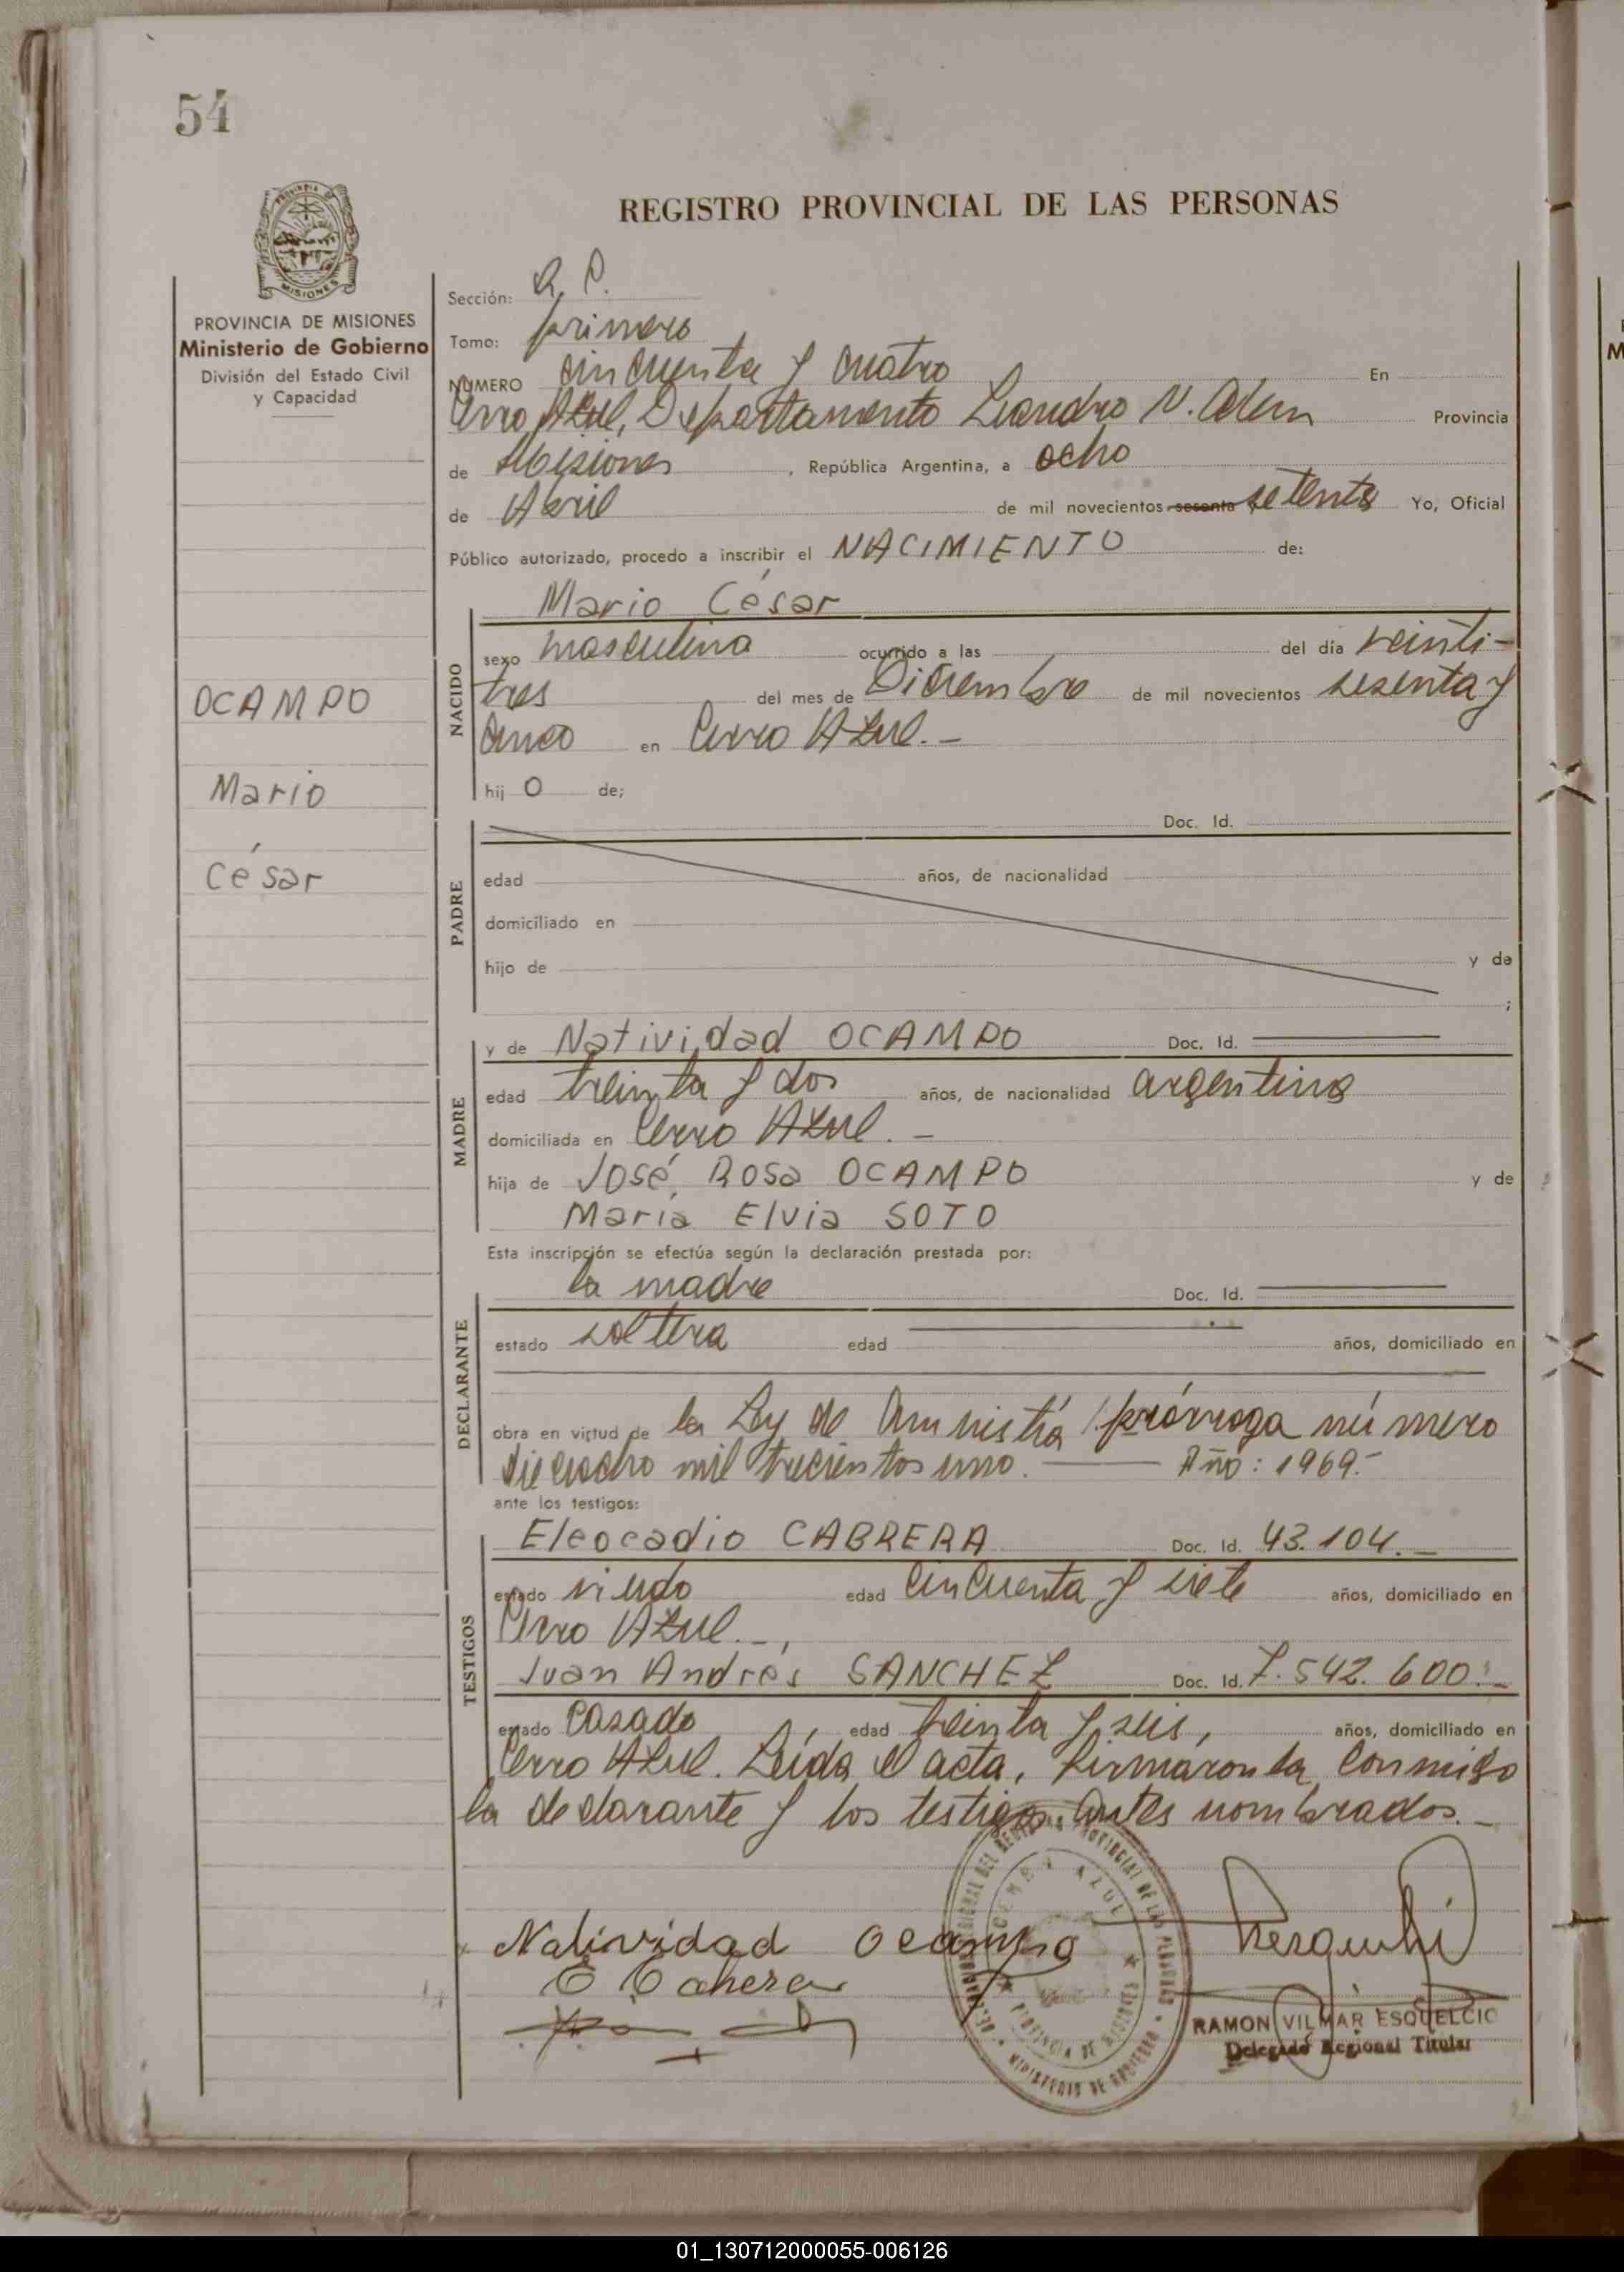 54
REGISTRO PROVINCIAL DE LAS PERSONAS
MISIONES
PROVINCIA DE MISIONES
Ministerio de Gobierno
División del Estado Civil
y Capacidad
Sección:
Tomo: primero
NUMERO cincuenta y cuatro En
Cerro Azul, Departamento Leandro N. Alem Provincia
de Misiones , República Argentina, a ocho
de Abril de mil novecientos sesenta setenta Yo, Oficial
Público autorizado, procedo a inscribir el NACIMIENTO de:
Mario César
sexo masculino ocurrido a las del día veinti-
tres del mes de Diciembre de mil novecientos sesenta y
cinco en Cerro Azul.-
hij o de;
NACIDO
OCAMPO
Mario
César
Doc. Id.
edad años, de nacionalidad
domiciliado en
hijo de y de
;
PADRE
y de Natividad OCAMPO Doc. Id.
edad treinta y dos años, de nacionalidad argentina
domiciliada en Cerro Azul.-
hija de José Rosa OCAMPO y de
María Elvia SOTO
MADRE
Esta inscripción se efectúa según la declaración prestada por:
la madre Doc. Id.
estado soltera edad años, domiciliado en
obra en virtud de la Ley de Amnistía prórroga número
dieciocho mil trecientos uno. Año: 1969.-
DECLARANTE
ante los testigos:
Eleocadio CABRERA Doc. Id. 43.104.-
estado viudo edad cincuenta y siete años, domiciliado en
Cerro Azul.-,
Juan Andrés SANCHEZ Doc. Id. 7.542.600.-
estado casado edad treinta y seis, años, domiciliado en
Cerro Azul. Leída el acta, firmaronla conmigo
la declarante y los testigos antes nombrados.-
TESTIGOS
Natividad Ocampo
CERRO AZUL
PROVINCIA DE MISIONES
MINISTERIO DE GOBIERNO
RAMON VILMAR ESQUELCIO
Delegado Regional Titular
01_130712000055-006126